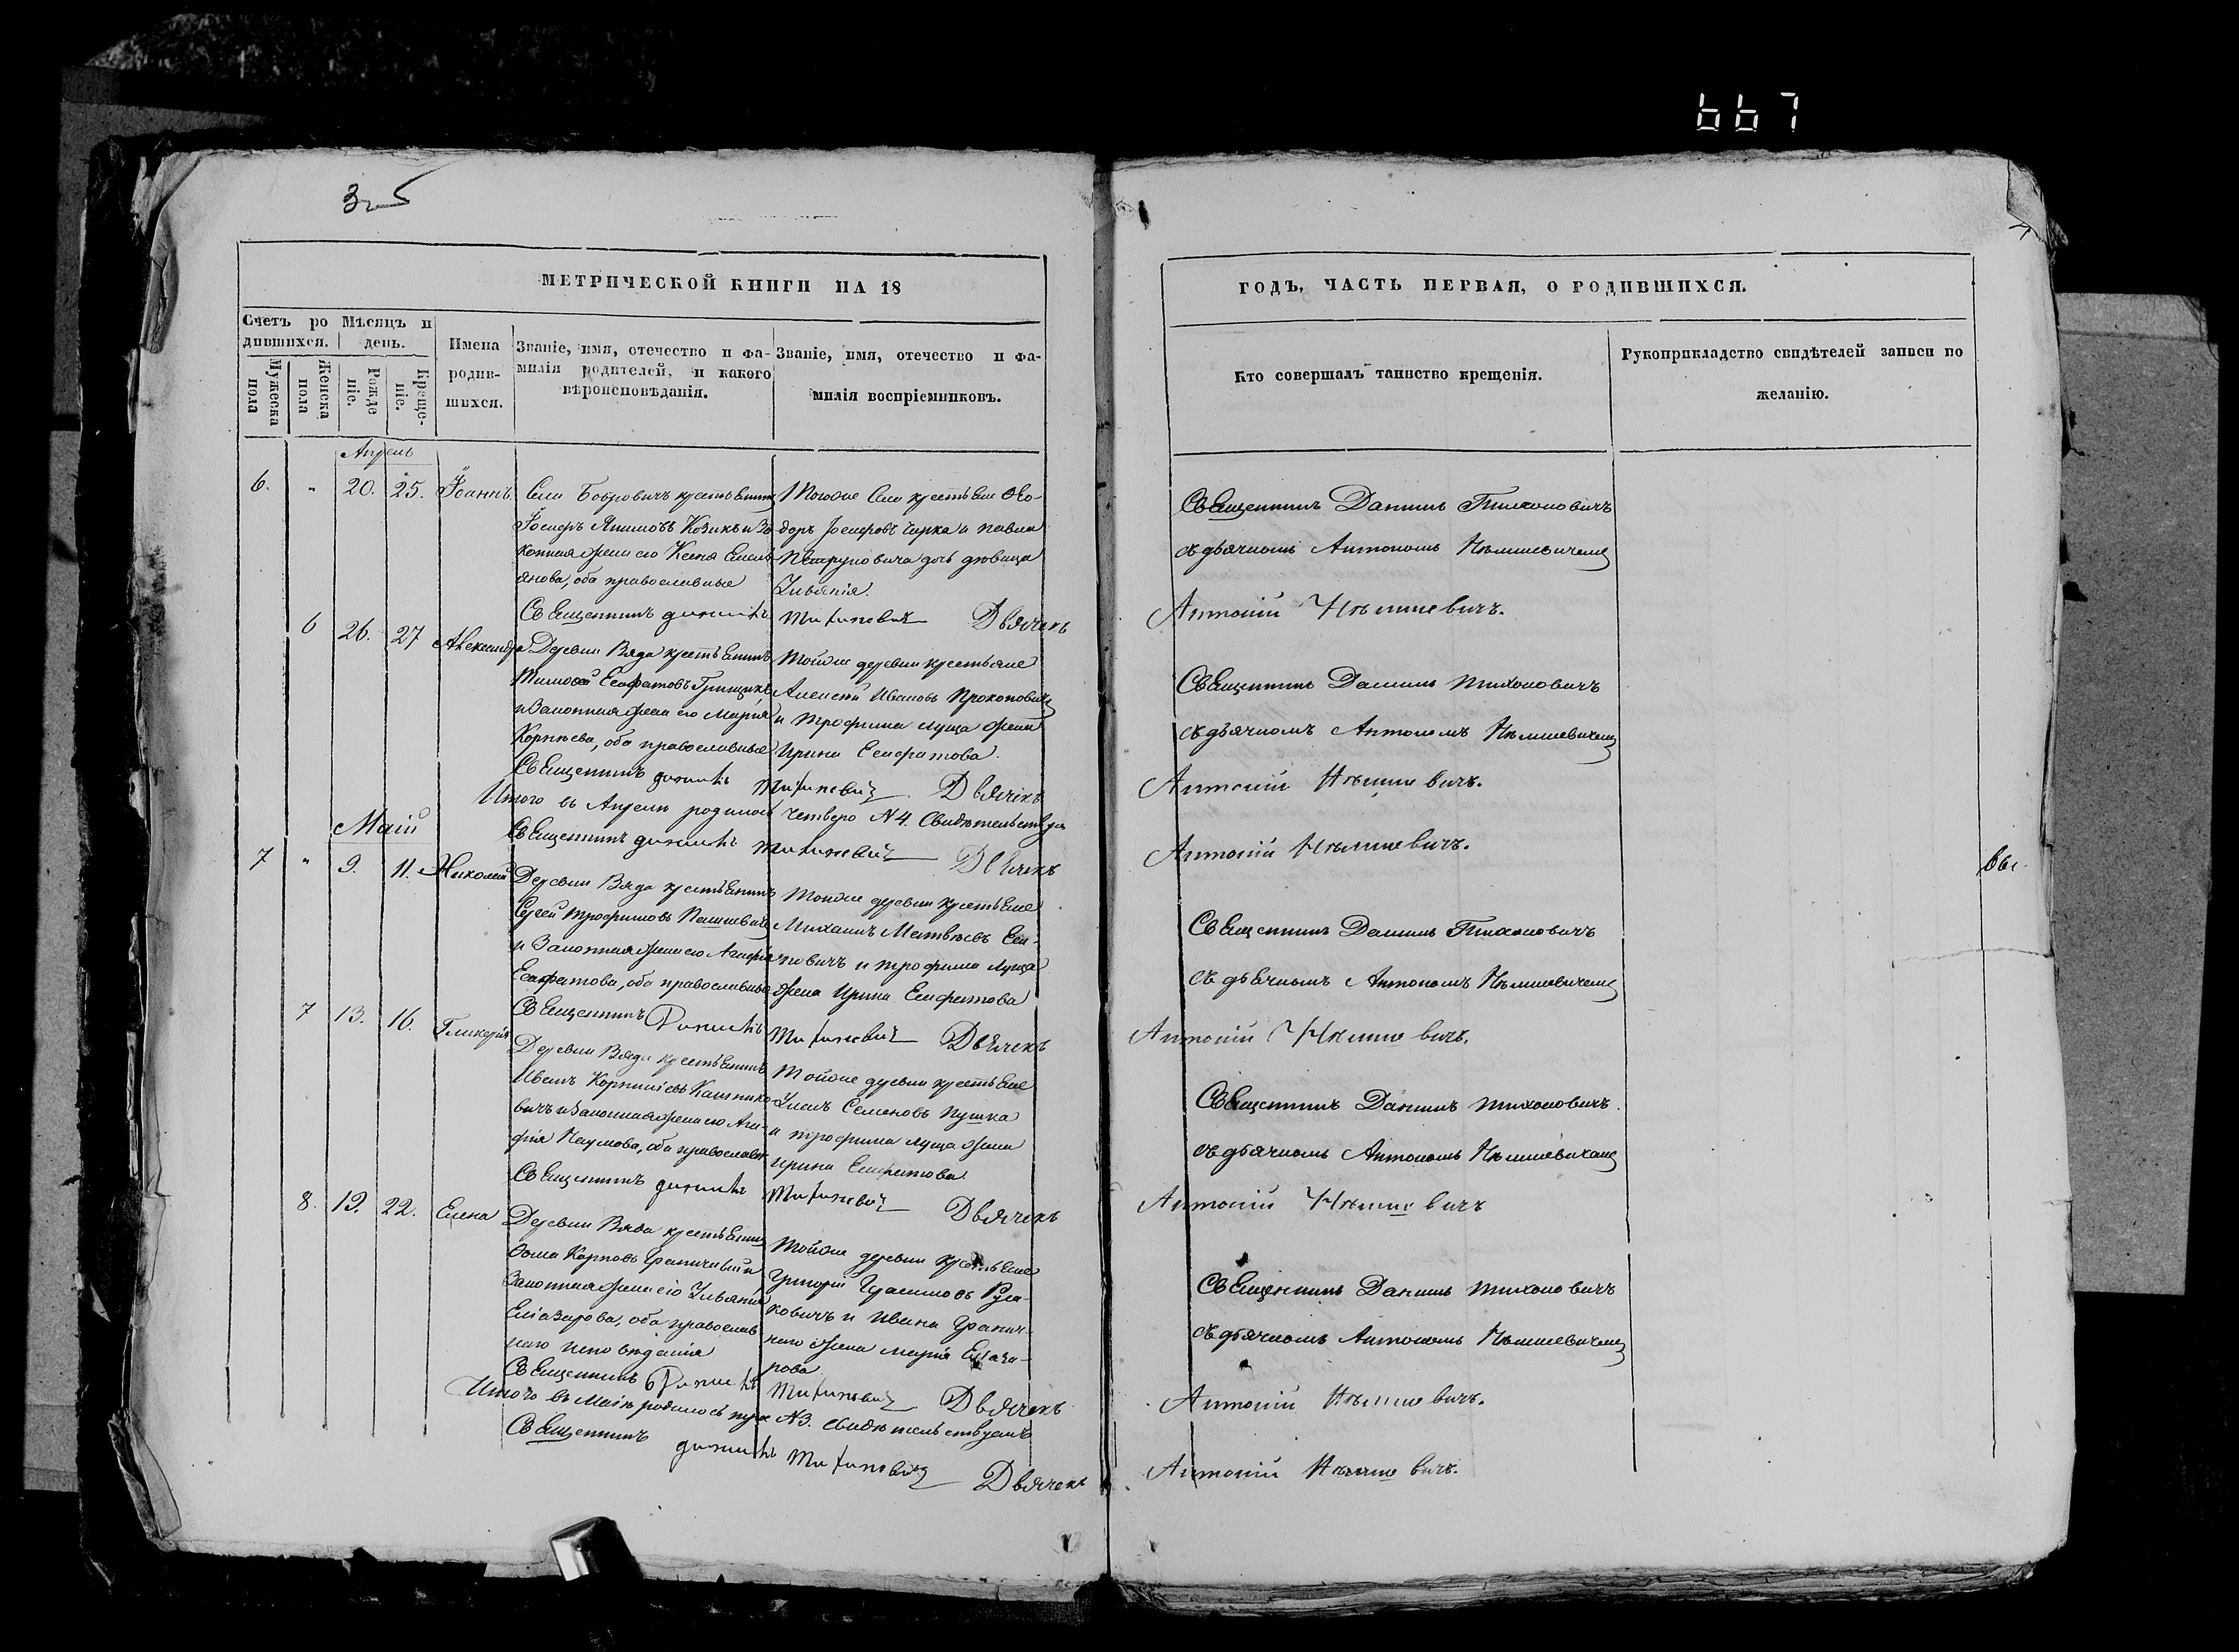 667
325
МЕТРИЧЕСКОЙ КНИГИ НА 18
ГОДЪ, ЧАСТЬ ПЕРВАЯ, О РОДИВШИХСЯ.
Счетъ ро
дившихся.
Мѣсяцъ и
день.
Мужеска
пола
Женска
пола
Рожде
ніе.
Креще-
ніе.
Имена
родив-
шихся.
Званіе, имя, отечество и фа-
милія родителей, и какого
вѣроисповѣданія.
Званіе, имя, отечество и фа-
милія воспріемниковъ.
Кто совершалъ таинство крещенія.
Рукоприкладство свидѣтелей записи по
желанію.
Апрель
6. " 20. 25. Іоаннъ
Села Бобровичъ крестьянинъ
Іосифъ Якимовъ Козикъ и За
конная жена его Ксенія Емель
янова, оба православные
Тогоже Села крестьяне Ѳео-
доръ Іосифовъ Чирка и Павла
Петруковича дочь девица
Ульянія.
Священникъ Даниилъ Тихоновичъ
съ дьячкомъ Антономъ Нѣмшевичемъ
Священникъ Даниилъ Тихоновичъ Дьячекъ Антоній Нѣмшевичъ.
6 26. 27 Александра
Деревни Вяда крестьянинъ
Тимофей Есафатовъ Грищикъ
и Законная жена его Марія
Корнѣева, оба православные
Тойже деревни крестьяне
Алексей Ивановъ Прокоповичъ
и Трофима Луща жена
Ирина Есафатова.
Священникъ Даниилъ Тихоновичъ
съ дьячкомъ Антономъ Нѣмшевичемъ
Священникъ Даниилъ Тихоновичъ Дьячекъ Антоній Нѣмшевичъ.
Итого въ Апрели родилось четверо N 4. Свидѣтельствуемъ
Священникъ Даниилъ Тихоновичъ Дьячекъ Антоній Нѣмшевичъ.
Маій
7 " 9. 11. Николай
Деревни Вяда крестьянинъ
Сергей Трофимовъ
и Законная жена его Агафія
Есафатова, оба православные
Тойже деревни крестьяне
Михаилъ Матвѣевъ
и Трофима Луща
жена Ирина Есафатова
Священникъ Даниилъ Тихоновичъ
съ дьячкомъ Антономъ Нѣмшевичемъ
Священникъ Даниилъ Тихоновичъ Дьячекъ Антоній Нѣмшевичъ.
7 13. 16. Гликерія
Деревни Вяда крестьянинъ
Иванъ Корниліевъ Кашнико-
вичъ и Законная жена его Ага-
фія Наумова, оба православн
Тойже деревни крестьяне
Семеновъ Пушка
и Трофима Луща жена
Ирина Есафатова
Священникъ Даниилъ Тихоновичъ.
съ дьячкомъ Антономъ Нѣмшевичемъ
Священникъ Даниилъ Тихоновичъ Дьячекъ Антоній Нѣмшевичъ
8. 19. 22. Елена
Деревни Вяда крестьянинъ
Ѳома Карповъ и
Законная жена его Ульянія
Еліазарова, оба православ
наго исповѣданія
Тойже деревни крестьяне
Григорій Герасимовъ Руса-
ковичъ и Ивана
жена Марія Елаза-
рова
Священникъ Даниилъ Тихоновичъ
съ дьячкомъ Антономъ Нѣмшевичемъ
Священникъ Даниилъ Тихоновичъ Дьячекъ Антоній Нѣмшевичъ.
Итого въ Маіѣ родилось трое N 3. Свидѣтельствуемъ
Священникъ Даниилъ Тихоновичъ Дьячекъ Антоній Нѣмшевичъ.